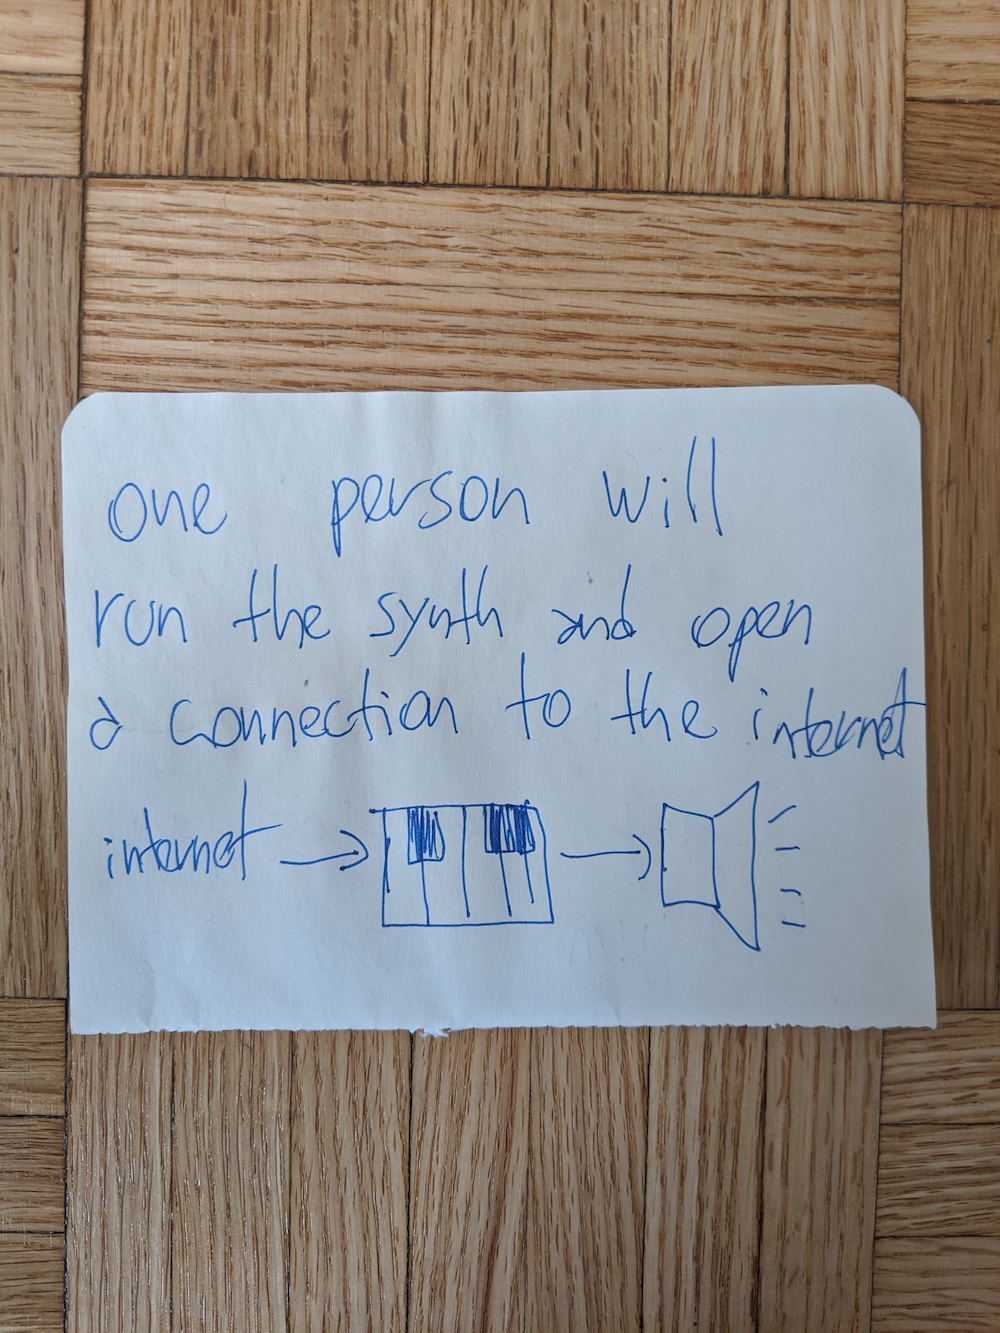 one person will
run the synth and open
a connection to the internet
internet